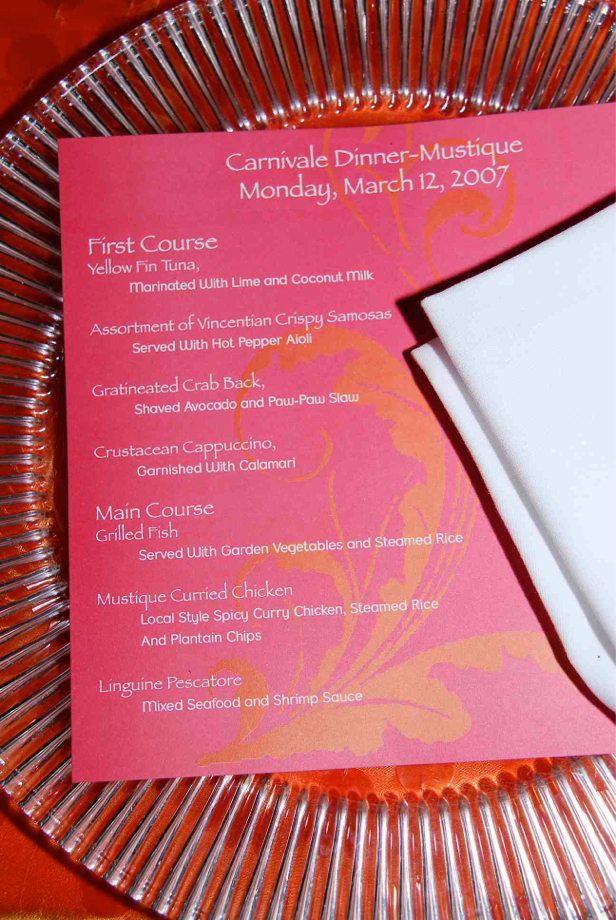 Carnivale Dinner-Mustique
Monday, March 12, 2007
First Course
Yellow Fin Tuna,
Marinated With Lime and Coconut Milk
Assortment of Vincentian Crispy Samosas
Served With Hot Pepper Aioli
Gratineated Crab Back,
Shaved Avocado and Paw-Paw Slaw
Crustacean Cappuccino,
Garnished With Calamari
Main Course
Grilled Fish
Served With Garden Vegetables and Steamed Rice
Mustique Curried Chicken
Local Style Spicy Curry Chicken, Steamed Rice
And Plantain Chips
Linguine Pescatore
Mixed Seafood and Shrimp Sauce